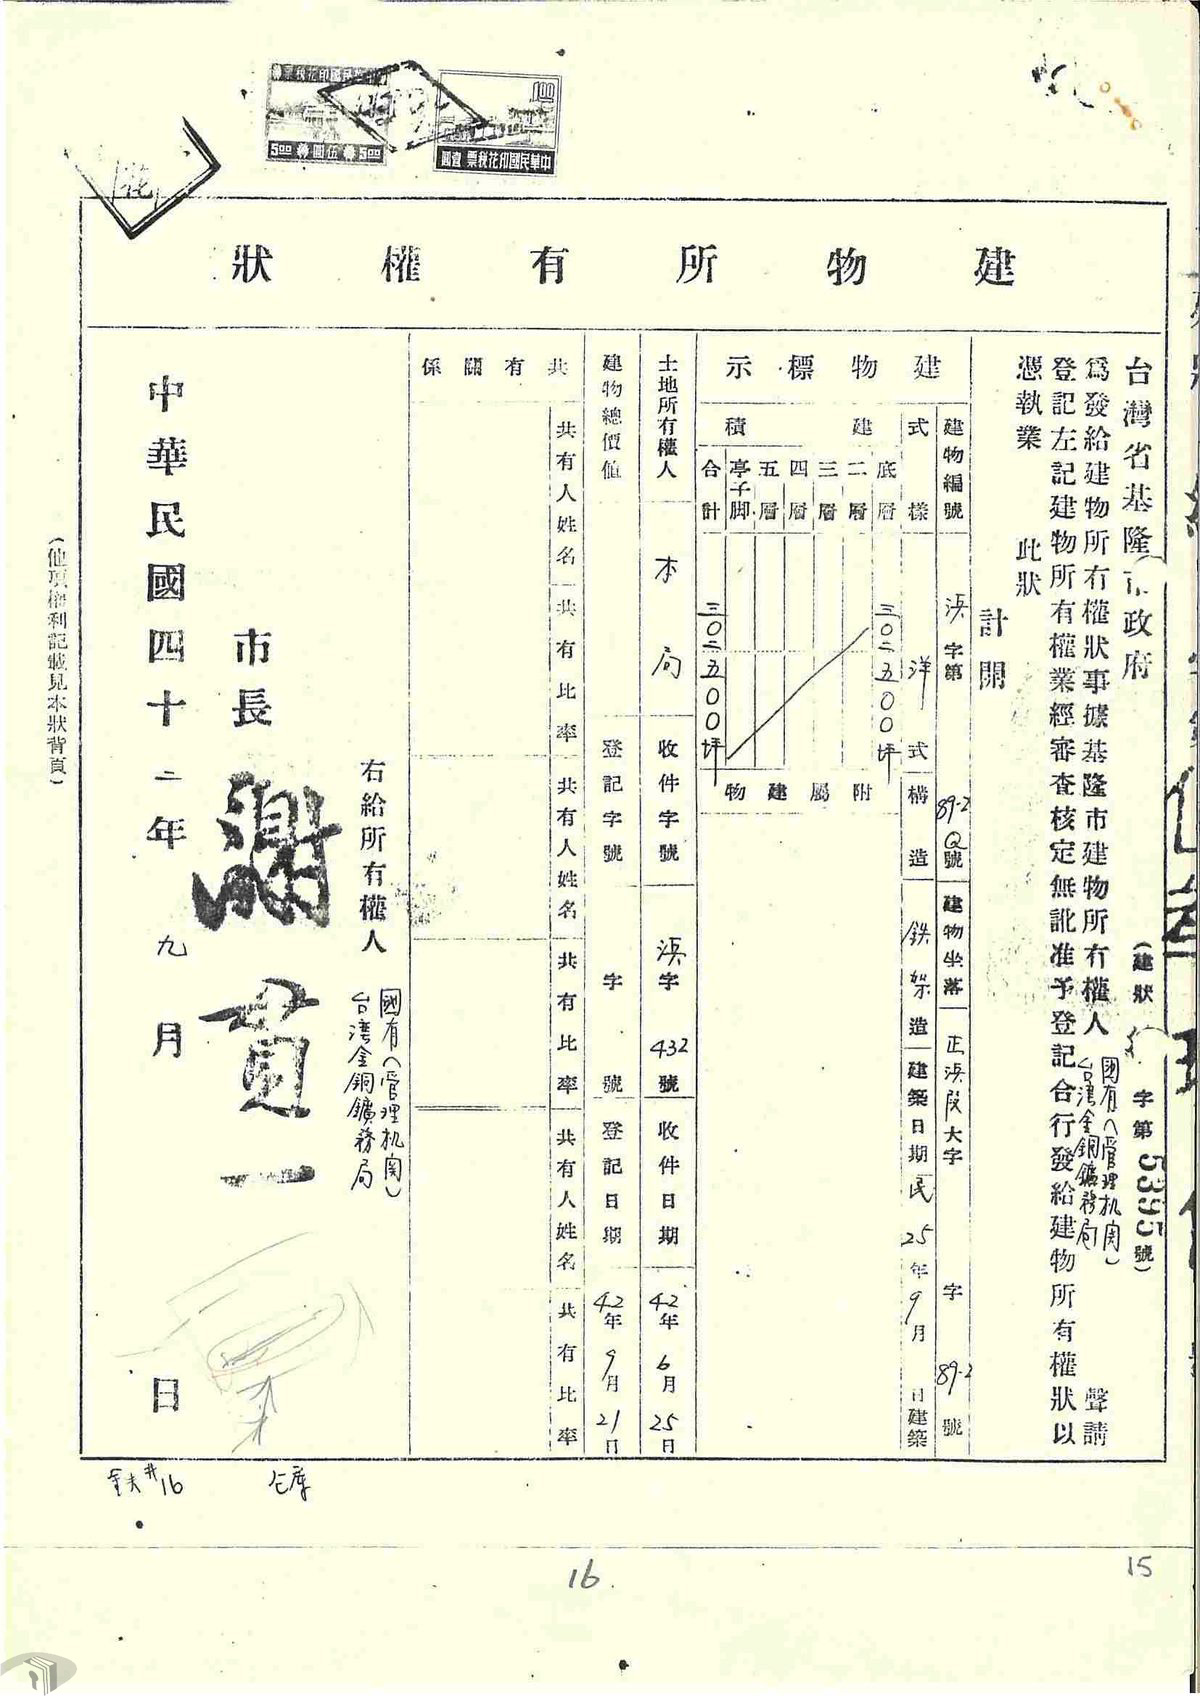 中華民國印花稅票
5.00 伍圓 5.00
1.00
中華民國印花稅票 壹圓
花
建物所有權狀
台灣省基隆市政府
(建狀 字第5395號)
為發給建物所有權狀事據基隆市建物所有權人 國有(管理机関) 台湾金銅鑛務局 聲請
登記左記建物所有權業經審查核定無訛准予登記合行發給建物所有權狀以
憑執業 此狀
計開
建物標示
建物編號 浜字第89-2Q號 建物坐落 正浜段大字 字 89-2號
式樣 洋式 構造 鉄架造 建築日期 民25年9月 日建築
建積
底層 三〇二五〇〇坪
二層
三層
四層
五層
亭子脚
合計 三〇二五〇〇坪
附屬建物
土地所有權人 本局 收件字號 浜字432號 收件日期 42年6月25日
建物總價值 登記字號 字 號 登記日期 42年9月21日
共有關係
共有人姓名 共有比率 共有人姓名 共有比率 共有人姓名 共有比率
右給所有權人 國有(管理机関) 台湾金銅鑛務局
市長 謝貫一
中華民國四十二年九月 日
(他項權利記載見本狀背頁)
鈇#16 仓庫
16
15